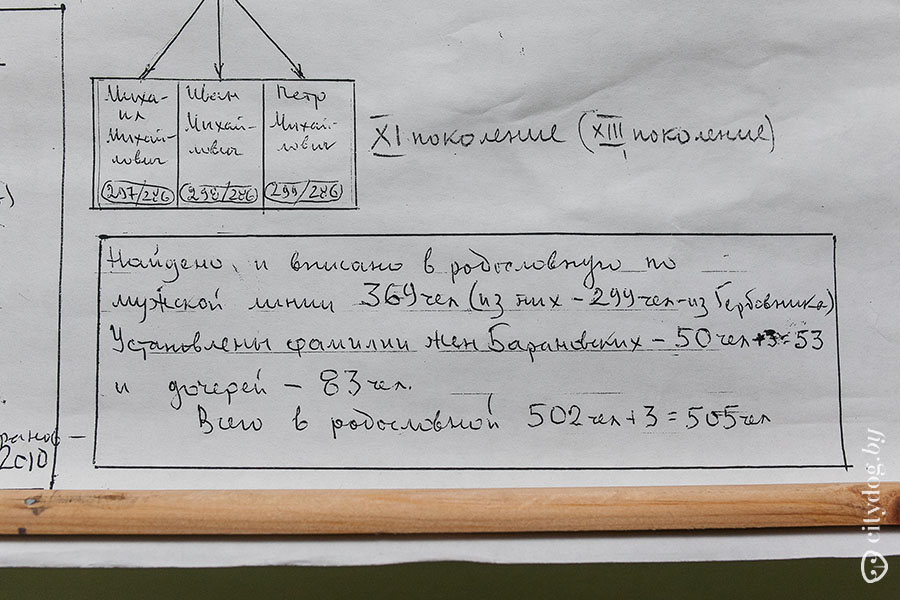 Миха-
ил
Михай-
лович
297/286
Иван
Михай-
лович
298/286
Петр
Михай-
лович
299/286
XI поколение (XIII поколение)
Найдено и вписано в родословную по
мужской линии 369 чел (из них - 299 чел - из Гербовника)
Установлены фамилии жен Барановских - 50 чел + 3 = 53
и дочерей - 83 чел.
Всего в родословной 502 чел + 3 = 505 чел
2010
citydog.by